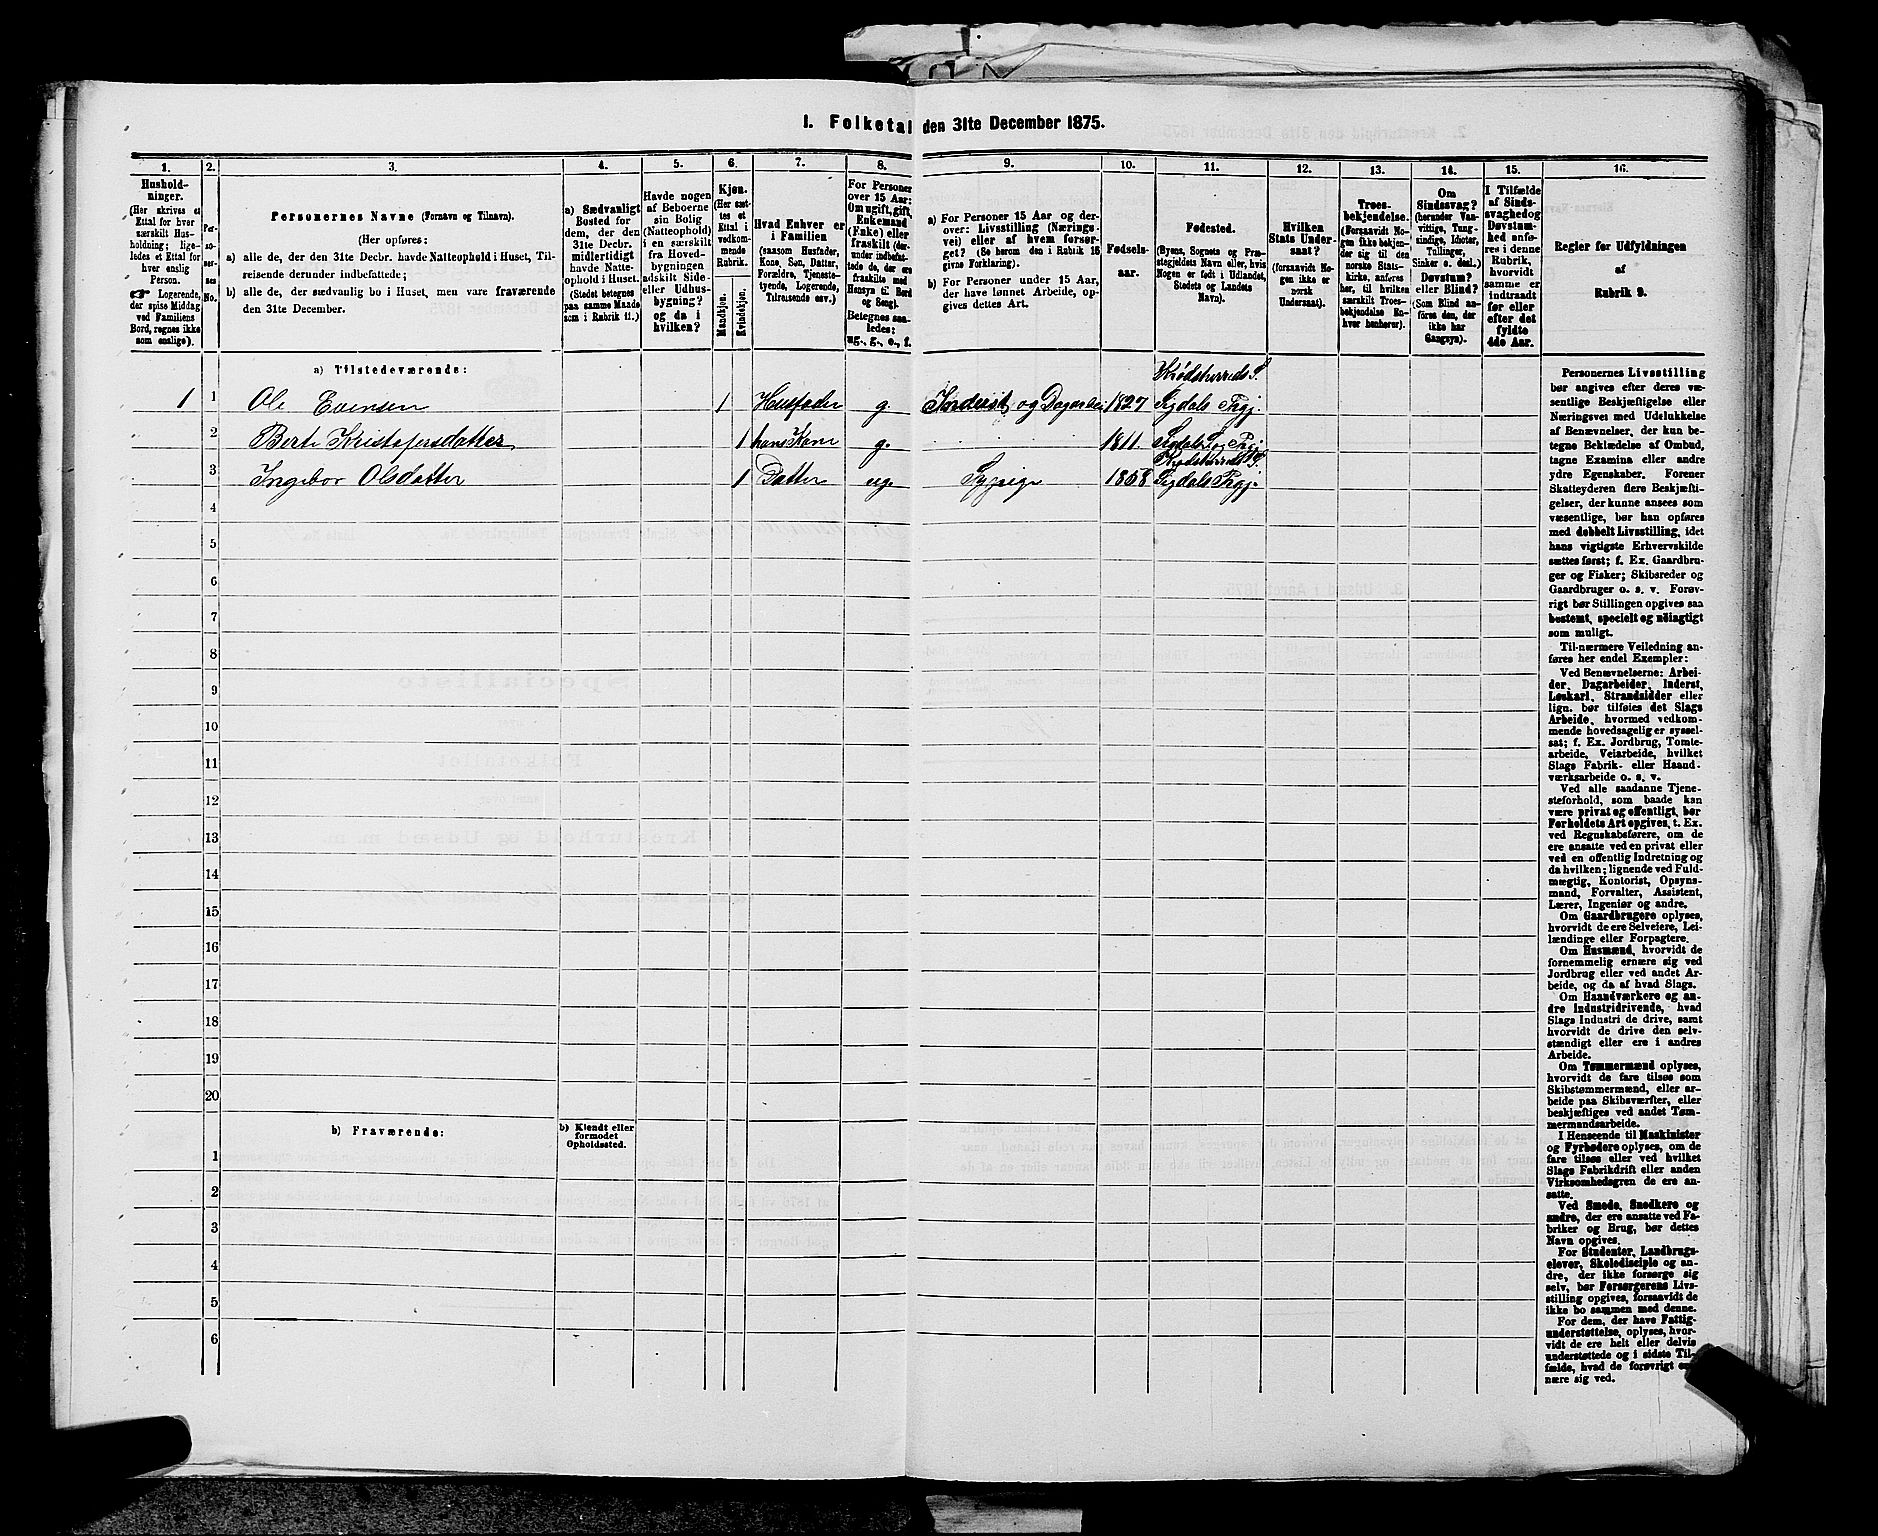 1. Folketal den 31te December 1875.
1.
Hushold-
ninger.
(Her skrives et
Ettal for hver
særskilt Hus-
holdning; lige-
ledes et Ettal for
hver enslig
Person.
Logerende,
der spise Middag
ved Familiens
Bord, regnes ikke
som enslige).
2.
Per-
so-
ner-
nes
No.
3.
Personernes Navne (Fornavn og Tilnavn).
(Her opføres:
a) alle de, der den 31te Decbr. havde Natteophold i Huset, Til-
reisende derunder indbefattede;
b) alle de, der sædvanlig bo i Huset, men vare fraværende
den 31te December.
4.
a) Sædvanligt
Bosted for
dem, der den
31te Decbr.
midlertidigt
havde Natte-
ophold i Huset.
(Stedet betegnes
paa samme Maade
som i Rubrik 11.)
5.
Havde nogen
af Beboerne
sin Bolig
(Natteophold)
i en særskilt
fra Hoved-
bygningen
adskilt Side-
eller Udhus-
bygning?
og da i
hvilken?
6.
Kjøn.
(Her sæt-
tes et
Ettal i
vedkom-
mende
Rubrik.
Mandkjøn.
Kvindekjøn.
7.
Hvad Enhver er
i Familien
(saasom Husfader,
Kone, Søn, Datter,
Forældre, Tjeneste-
tyende, Logerende,
Tilreisende osv.)
8.
For Personer
over 15 Aar:
Om ugift, gift,
Enkemand
(Enke) eller
fraskilt (der-
under indbefat-
tede de, der ere
fraskilte med
Hensyn til Bord
og Seng).
Betegnes saa-
ledes:
ug., g., e., f.
9.
a) For Personer 15 Aar og der-
over: Livsstilling (Nærings-
vei) eller af hvem forsør-
get? (Se herom den i Rubrik 16
givne Forklaring).
b) For Personer under 15 Aar,
der have lønnet Arbeide, op-
gives dettes Art.
10.
Fødsels-
aar.
11.
Fødested.
(Byens, Sognets og Præ-
stegjeldets Navn eller, hvis
Nogen er født i Udlandet,
Stedets og Landets
Navn).
12.
Hvilken
Stats Under-
saat?
(forsaavidt No-
gen ikke er
norsk
Undersaat).
13.
Troes-
bekjendelse.
(Forsaavidt No-
gen ikke bekjen-
der sig til den
norske Stats-
kirke, anføres
her, til hvilken
særskilt Troes-
bekjendelse En-
hver henhører).
14.
Om
Sindssvag?
(herunder Van-
vittige, Tung-
sindige, Idioter,
Tullinger,
Sinker o. desl.)
Døvstum?
eller Blind?
(Som Blind an-
føres den, der
ikke har
Gangsyn).
15.
I Tilfælde
af Sinds-
svaghed og
Døvstum-
hed anfø-
res i denne
Rubrik,
hvorvidt
samme er
indtraadt
før eller
efter det
fyldte
4de Aar.
16.
Regler for Udfyldningen
af
Rubrik 9.
a) Tilstedeværende:
Krødsherreds S.
1 1 Ole Evensen 1 Husfader g. Inderst og Dagarbei 1827 Sigdals Prgj.
2 Berte Kristofersdatter 1 hans Kone g. 1811. Sigdals S. og Prgj.
Krødsherreds S.
3 Ingebor Olsdatter 1 Datter ug. Sypige 1858 Sigdals Prgj.
4
5
6
7
8
9
10
11
12
13
14
15
16
17
18
19
20
b) Fraværende:
b) Kjendt eller
formodet
Opholdssted.
1
2
3
4
5
6
Personernes Livsstilling
bør angives efter deres væ-
sentlige Beskjæftigelse eller
Næringsvei med Udelukkelse
af Benævnelser, der kun be-
tegne Beklædelse af Ombud,
tagne Examina eller andre
ydre Egenskaber. Forener
Skatteyderen flere Beskjæfti-
gelser, der kunne ansees som
væsentlige, bør han opføres
med dobbelt Livsstilling, idet
hans vigtigste Erhvervskilde
sættes først; f. Ex. Gaardbru-
ger og Fisker; Skibsreder og
Gaardbruger o. s. v. Forøv-
rigt bør Stillingen opgives saa
bestemt, specielt og nøiagtigt
som muligt.
Til nærmere Veiledning an-
føres her endel Exempler:
Ved Benævnelserne: Arbei-
der, Dagarbeider, Inderst,
Løskarl, Strandsidder eller
lign. bør tilføies det Slags
Arbeide, hvormed vedkom-
mende hovedsagelig er syssel-
sat; f. Ex. Jordbrug, Tomte-
arbeide, Veiarbeide, hvilket
Slags Fabrik- eller Haand-
værksarbeide o. s. v.
Ved alle saadanne Tjene-
steforhold, som baade kan
være privat og offentligt, bør
Forholdets Art opgives, t. Ex.
ved Regnskabsførere, om de
ere ansatte ved en privat eller
ved en offentlig Indretning og
da hvilken; lignende ved Fuld-
mægtig, Kontorist, Opsyns-
mand, Forvalter, Assistent,
Lærer, Ingeniør og andre.
Om Gaardbrugere oplyses,
hvorvidt de ere Selveiere, Lei-
lændinge eller Forpagtere.
Om Husmænd, hvorvidt de
fornemmelig ernære sig ved
Jordbrug eller ved andet Ar-
beide, og da af hvad Slags.
Om Haandværkere og an-
dre Industridrivende, hvad
Slags Industri de drive, samt
hvorvidt de drive den selv-
stændigt eller ere i andres
Arbeide.
Om Tømmermænd oplyses,
hvorvidt de fare tilsøs som
Skibstømmermænd, eller ar-
beide paa Skibsværfter, eller
beskjæftiges ved andet Tøm-
mermandsarbeide.
I Henseende til Maskinister
og Fyrbødere oplyses, om de
fare tilsøs eller ved hvilket
Slags Fabrikdrift eller anden
Virksomhedsgren de ere an-
satte.
Ved Smede, Snedkere og
andre, der ere ansatte ved Fa-
briker og Brug, bør dettes
Navn opgives.
For Studenter, Landbrugs-
elever, Skoledisciple og an-
dre, der ikke forsørge sig
selv, bør Forsørgerens Livs-
stilling opgives, forsaavidt de
ikke bo sammen med denne.
For dem, der have Fattig-
understøttelse, oplyses, hvor-
vidt de ere helt eller delvis
understøttede og i sidste Til-
fælde, hvad de forøvrigt er-
nære sig ved.